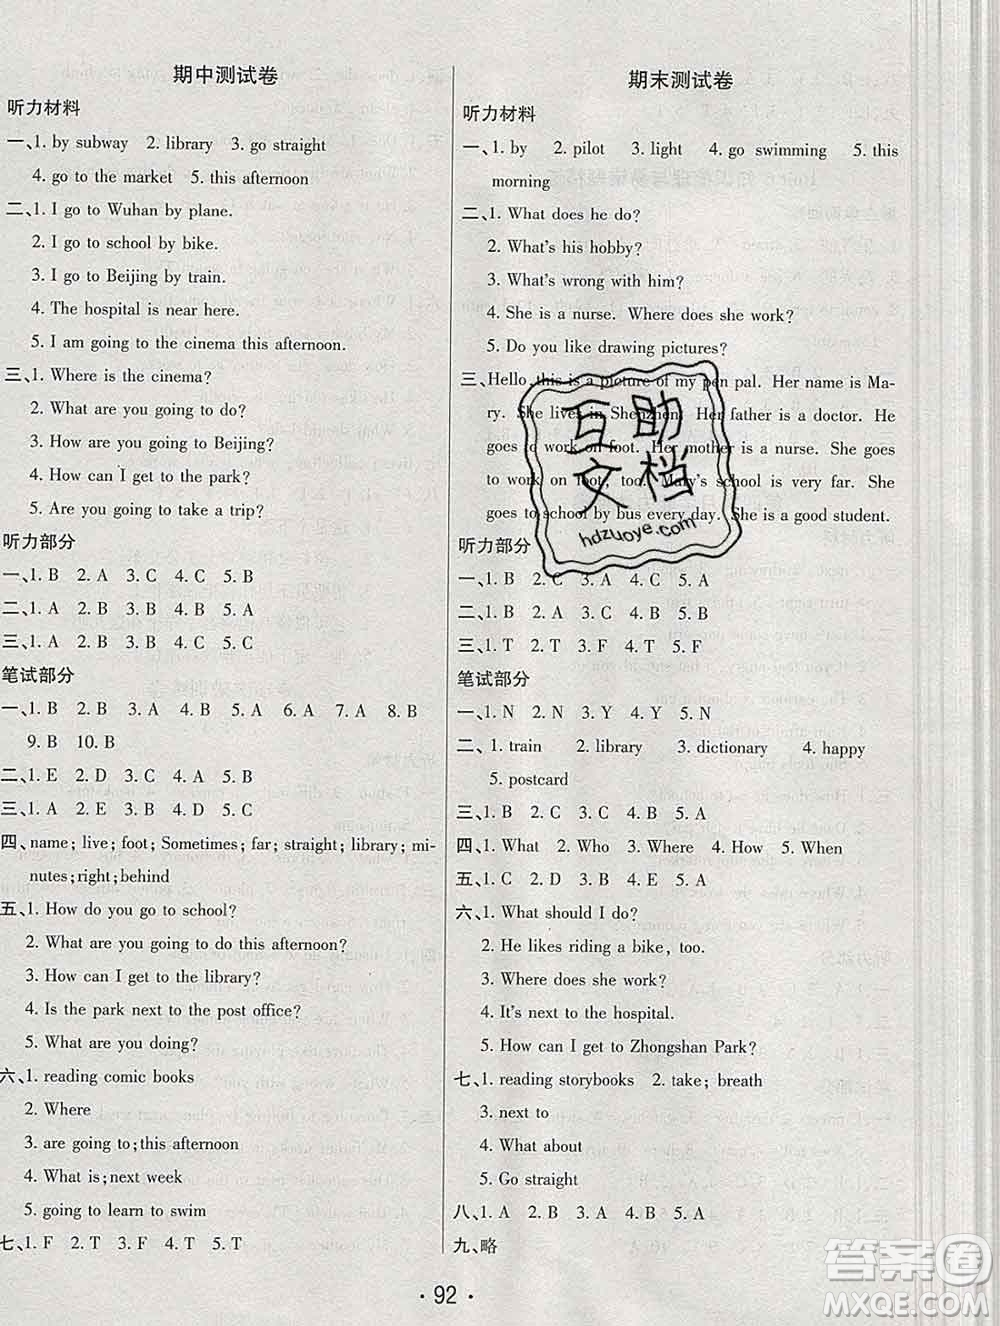 期中测试卷
听力材料
一、1. by subway 2. library 3. go straight
4. go to the market 5. this afternoon
二、1. I go to Wuhan by plane.
2. I go to school by bike.
3. I go to Beijing by train.
4. The hospital is near here.
5. I am going to the cinema this afternoon.
三、1. Where is the cinema?
2. What are you going to do?
3. How are you going to Beijing?
4. How can I get to the park?
5. Are you going to take a trip?
听力部分
一、1. B 2. A 3. C 4. C 5. B
二、1. A 2. C 3. B 4. B 5. A
三、1. A 2. B 3. A 4. C 5. C
笔试部分
一、1. B 2. B 3. A 4. B 5. A 6. A 7. A 8. B
9. B 10. B
二、1. E 2. D 3. C 4. A 5. B
三、1. A 2. E 3. B 4. C 5. D
四、name; live; foot; Sometimes; far; straight; library; mi-
nutes; right; behind
五、1. How do you go to school?
2. What are you going to do this afternoon?
3. How can I get to the library?
4. Is the park next to the post office?
5. What are you doing?
六、1. reading comic books
2. Where
3. are going to; this afternoon
4. What is; next week
5. going to learn to swim
七、1. F 2. T 3. F 4. T 5. T
期末测试卷
听力材料
一、1. by 2. pilot 3. light 4. go swimming 5. this
morning
二、1. What does he do?
2. What's his hobby?
3. What's wrong with him?
4. She is a nurse. Where does she work?
5. Do you like drawing pictures?
三、Hello, this is a picture of my pen pal. Her name is Ma-
ry. She lives in Shenzhen. Her father is a doctor. He
goes to work on foot. Her mother is a nurse. She goes
to work on foot, too. Mary's school is very far. She
goes to school by bus every day. She is a good student.
听力部分
一、1. B 2. C 3. A 4. C 5. A
二、1. B 2. A 3. C 4. B 5. B
三、1. T 2. F 3. T 4. T 5. F
笔试部分
一、1. N 2. N 3. Y 4. Y 5. N
二、1. train 2. library 3. dictionary 4. happy
5. postcard
三、1. B 2. C 3. C 4. B 5. A
四、1. What 2. Who 3. Where 4. How 5. When
五、1. C 2. D 3. B 4. E 5. A
六、1. What should I do?
2. He likes riding a bike, too.
3. Where does she work?
4. It's next to the hospital.
5. How can I get to Zhongshan Park?
七、1. reading storybooks 2. take; breath
3. next to
4. What about
5. Go straight
八、1. A 2. B 3. A 4. B 5. A
九、略
互助
文档
hdzuoye.com
· 92 ·
答案圈
MXQE.COM